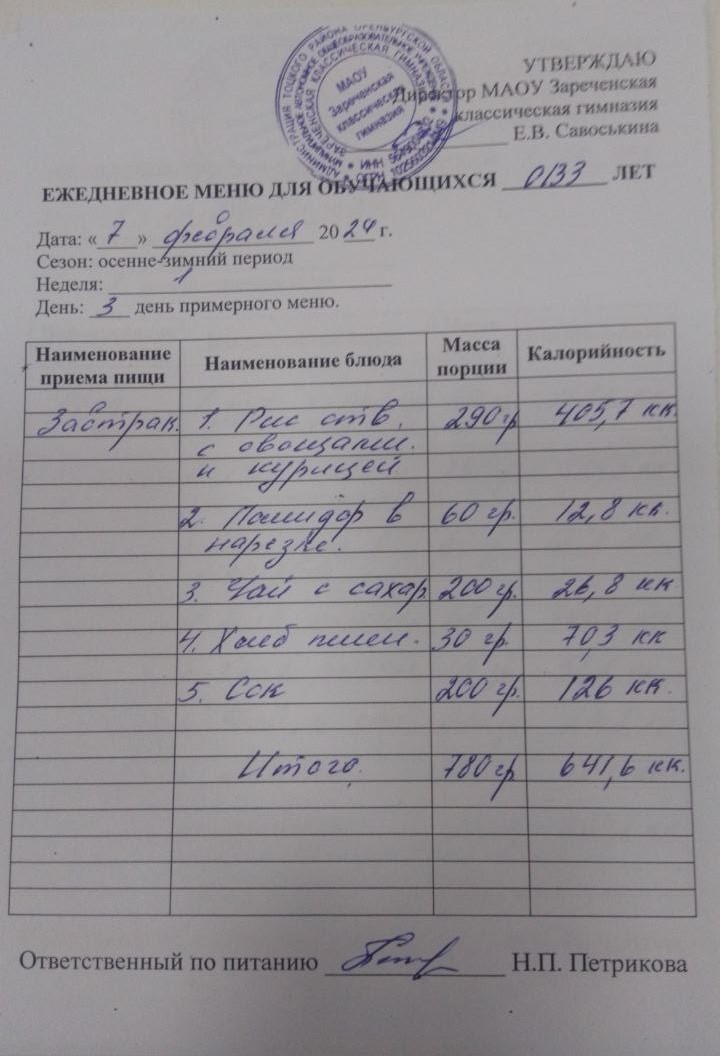 АДМИНИСТРАЦИЯ ТОЦКОГО РАЙОНА ОРЕНБУРГСКОЙ ОБЛАСТИ
МУНИЦИПАЛЬНОЕ АВТОНОМНОЕ ОБЩЕОБРАЗОВАТЕЛЬНОЕ УЧРЕЖДЕНИЕ
ЗАРЕЧЕНСКАЯ КЛАССИЧЕСКАЯ ГИМНАЗИЯ
МАОУ
Зареченская
классическая
гимназия
УТВЕРЖДАЮ
Директор МАОУ Зареченская
классическая гимназия
Е.В. Савоськина
ЕЖЕДНЕВНОЕ МЕНЮ ДЛЯ ОБУЧАЮЩИХСЯ ОВЗ ЛЕТ
Дата: «7» февраля 2024 г.
Сезон: осенне-зимний период
Неделя: 1
День: 3 день примерного меню.
Наименование приема пищи Наименование блюда Масса порции Калорийность
Завтрак. 1. Рис отв. 290 гр 405,7 кк.
с овощами.
и курицей
2. Помидор в 60 гр. 12,8 кк.
нарезке.
3. Чай с сахар 200 гр. 26,8 кк
4. Хлеб пшен. 30 гр. 70,3 кк
5. Сок 200 гр. 126 кк.
Итого. 780 гр 641,6 кк.
Ответственный по питанию Н.П. Петрикова